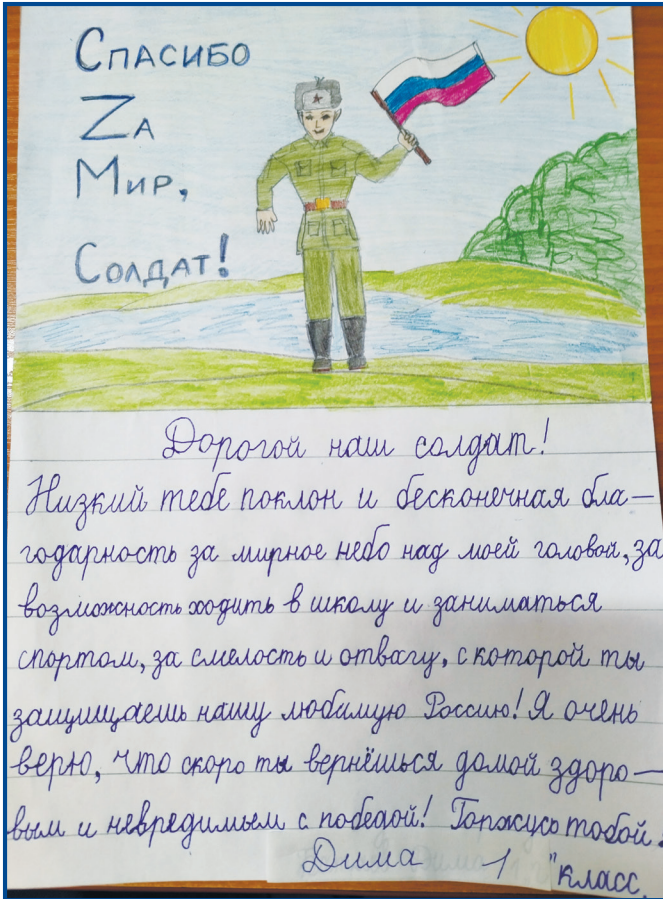 Спасибо
Zа
Мир,
Солдат!
Дорогой наш солдат!
Низкий тебе поклон и бесконечная бла–
годарность за мирное небо над моей головой, за
возможность ходить в школу и заниматься
спортом, за смелость и отвагу, с которой ты
защищаешь нашу любимую Россию! Я очень
верю, что скоро ты вернёшься домой здоро–
вым и невредимым с победой! Горжусь тобой.
Дима 1 " класс.